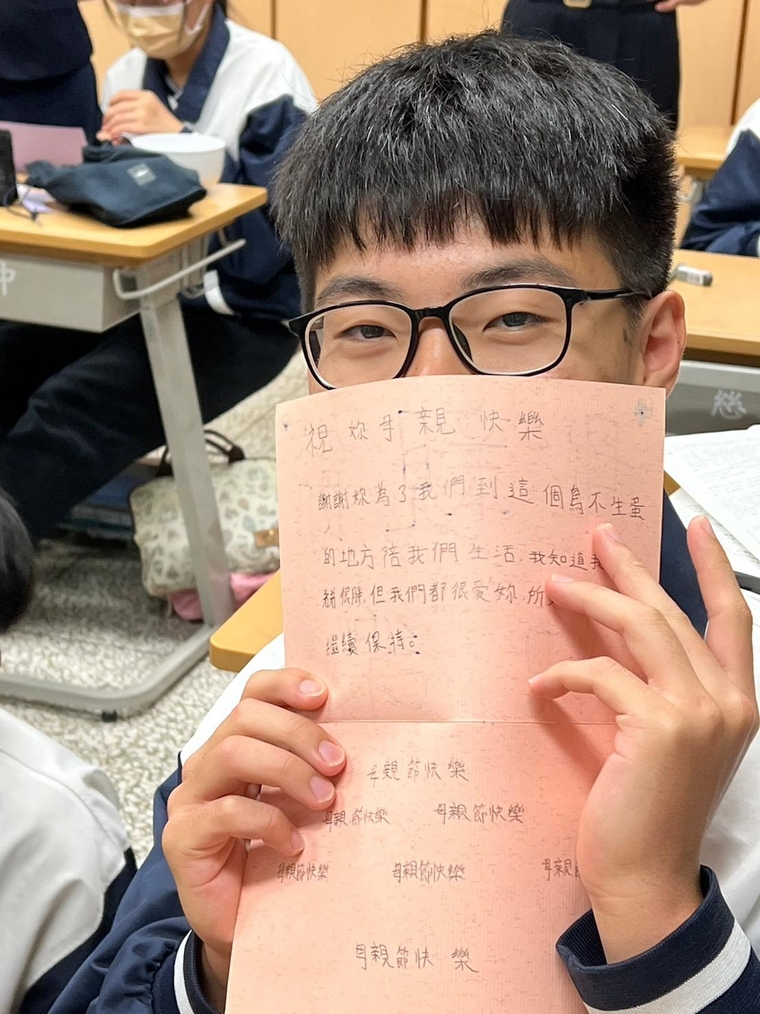 祝妳母親快樂
謝謝妳為了我們到這個鳥不生蛋
的地方陪我們生活,我知道
但我們都很愛妳,所
繼續保持。
母親節快樂
母親節快樂 母親節快樂
母親節快樂 母親節快樂 母親
母親節快樂
中